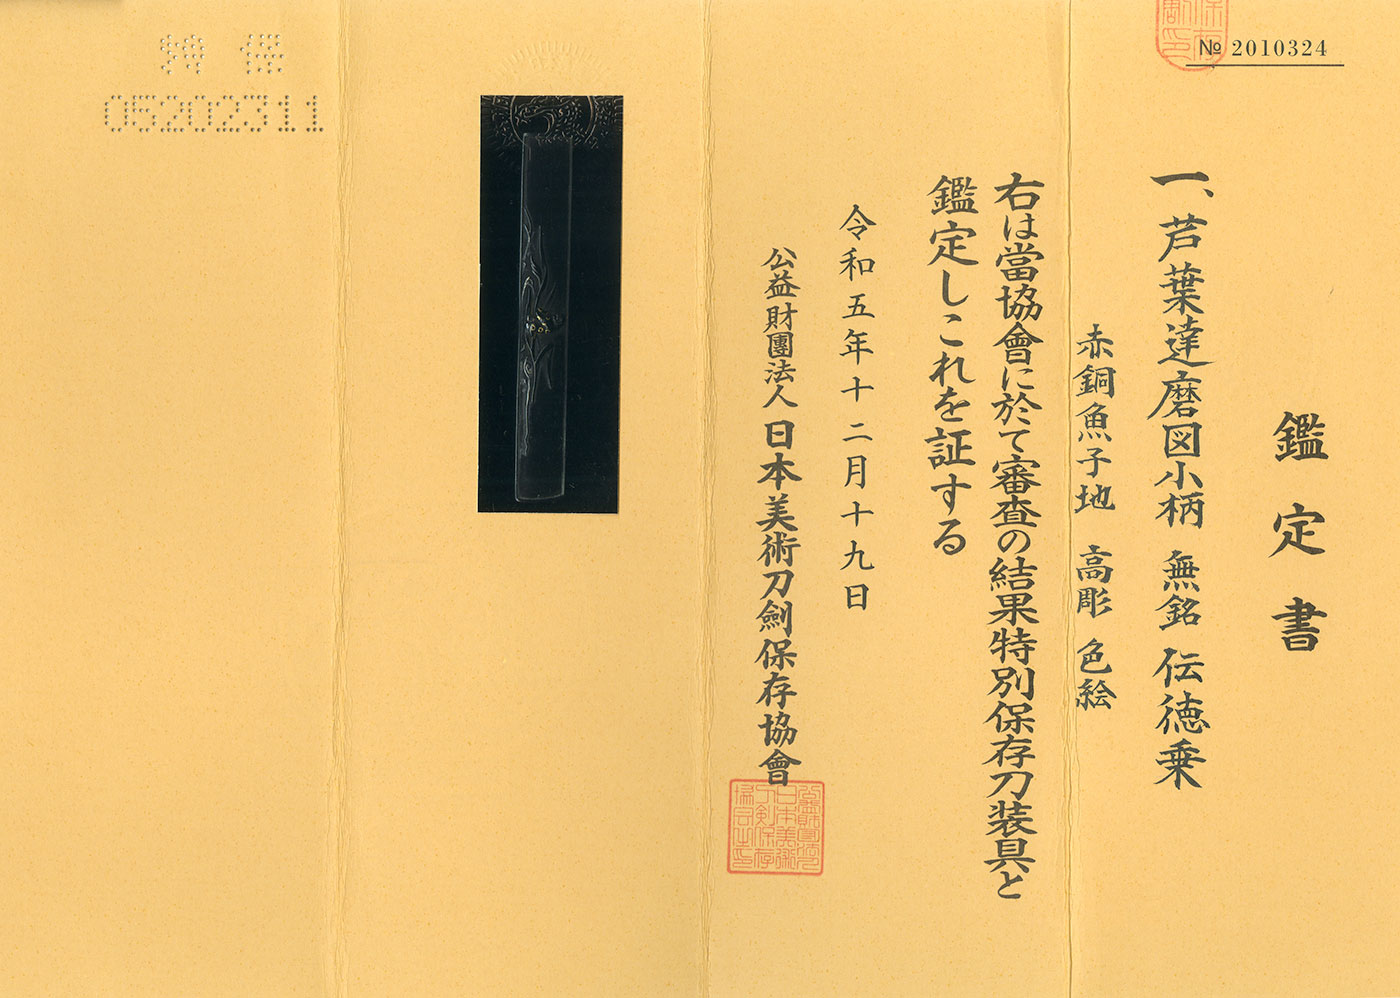 № 2010324
鑑定書
一、芦葉達磨図小柄 無銘 伝徳乗
赤銅魚子地 高彫 色絵
右は當協會に於て審査の結果特別保存刀装具と
鑑定しこれを証する
令和五年十二月十九日
公益財團法人 日本美術刀劍保存協會
特保
05202311